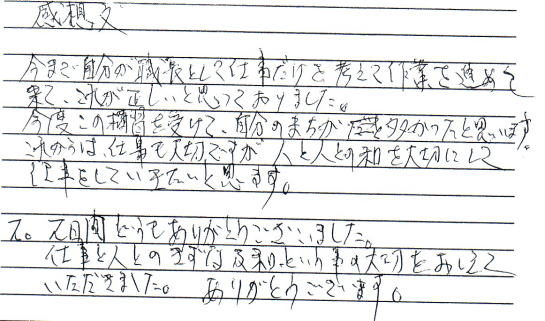 感想文
今まで自分が職長として仕事だけを考えて作業を進めて
来て、これが正しいと思っておりました。
今度この講習を受けて、自分のまちがいも多かったと思います。
これからは、仕事も大切ですが人と人との和を大切にして
仕事をしていきたいと思います。
間どうもありがとうございました。
仕事と人とのきずな という事の大切をおしえて
いただきました。 ありがとうございます。